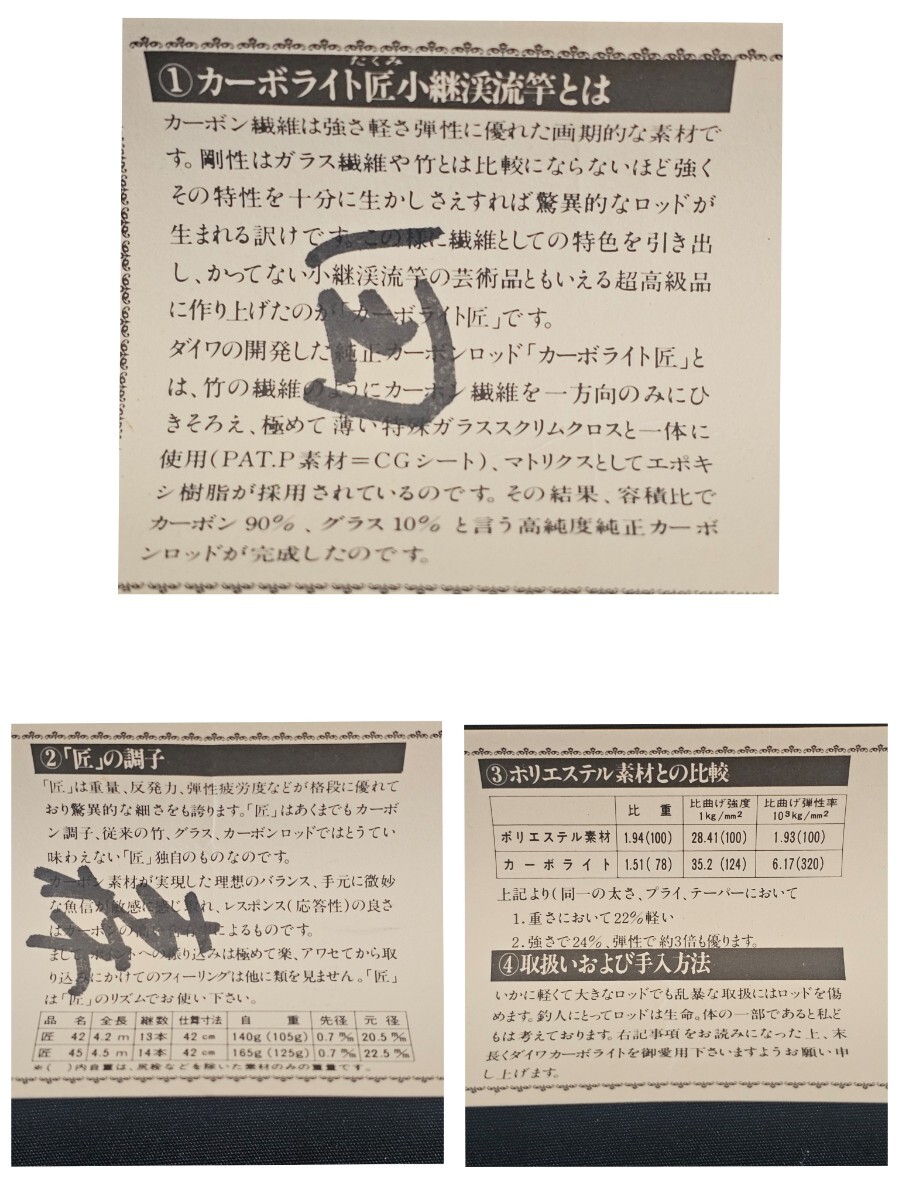 たくみ
①カーボライト匠小継渓流竿とは
カーボン繊維は強さ軽さ弾性に優れた画期的な素材で
す。剛性はガラス繊維や竹とは比較にならないほど強く
その特性を十分に生かしさえすれば驚異的なロッドが
生まれる訳けです。この様に繊維としての特色を引き出
し、かってない小継渓流竿の芸術品ともいえる超高級品
に作り上げたのが「カーボライト匠」です。
ダイワの開発した純正カーボンロッド「カーボライト匠」と
は、竹の繊維のようにカーボン繊維を一方向のみにひ
きそろえ、極めて薄い特殊ガラススクリムクロスと一体に
使用(PAT.P素材=CGシート)、マトリクスとしてエポキ
シ樹脂が採用されているのです。その結果、容積比で
カーボン90%、グラス10%と言う高純度純正カーボ
ンロッドが完成したのです。
匠
②「匠」の調子
「匠」は重量、反発力、弾性疲労度などが格段に優れて
おり驚異的な細さをも誇ります。「匠」はあくまでもカーボ
ン調子、従来の竹、グラス、カーボンロッドではとうてい
味わえない「匠」独自のものなのです。
カーボン素材が実現した理想のバランス、手元に微妙
な魚信が敏感に感じ取れ、レスポンス(応答性)の良さ
はカーボンの
によるものです。
ましてポイントへの振り込みは極めて楽、アワセてから取
り込みにかけてのフィーリングは他に類を見ません。「匠」
は「匠」のリズムでお使い下さい。
品名 全長 継数 仕舞寸法 自重 先径 元径
匠 42 4.2m 13本 42cm 140g(105g) 0.7㎜ 20.5㎜
匠 45 4.5m 14本 42cm 165g(125g) 0.7㎜ 22.5㎜
※( )内自重は、尻栓などを除いた素材のみの重量です。
③ポリエステル素材との比較
比重 比曲げ強度 1kg/mm² 比曲げ弾性率 10³kg/mm²
ポリエステル素材 1.94(100) 28.41(100) 1.93(100)
カーボライト 1.51(78) 35.2(124) 6.17(320)
上記より(同一の太さ、プライ、テーパーにおいて
1.重さにおいて22%軽い
2.強さで24%、弾性で約3倍も優ります。
④取扱いおよび手入方法
いかに軽くて大きなロッドでも乱暴な取扱にはロッドを傷
めます。釣人にとってロッドは生命。体の一部であると私ど
もは考えております。右記事項をお読みになった上、末
長くダイワカーボライトを御愛用下さいますようお願い申
し上げます。